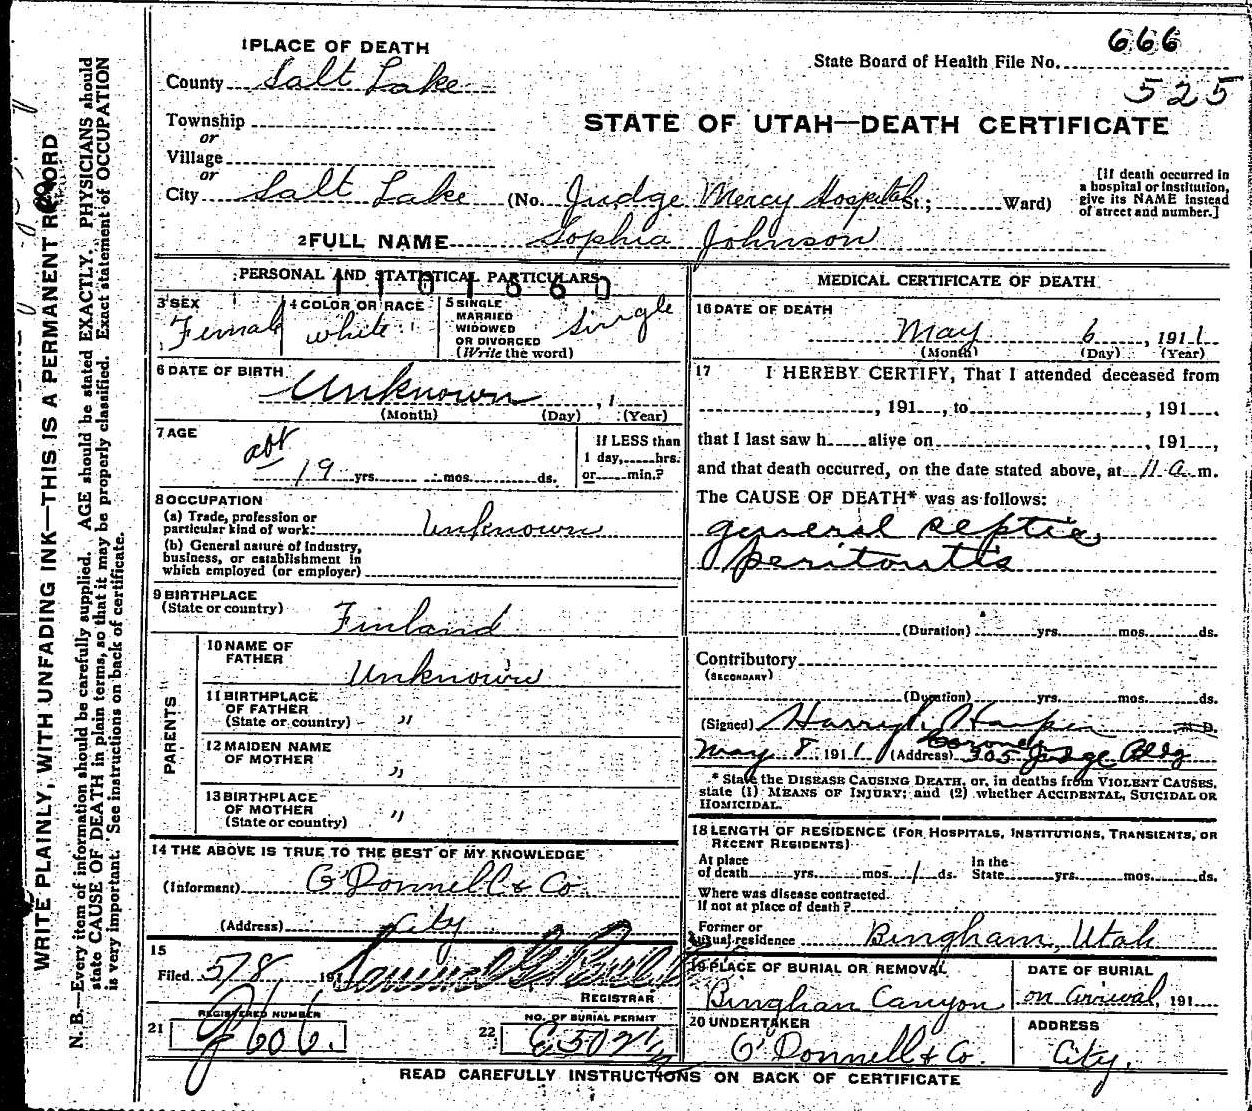 666
State Board of Health File No.
525
1 PLACE OF DEATH
County Salt Lake
STATE OF UTAH—DEATH CERTIFICATE
Township
or
Village
or
City Salt Lake (No. Judge Mercy Hospital St.; Ward)
[If death occurred in
a hospital or institution,
give its NAME instead
of street and number.]
2 FULL NAME Sophia Johnson
PERSONAL AND STATISTICAL PARTICULARS
3 SEX
Female
4 COLOR OR RACE
white
5 SINGLE
MARRIED
WIDOWED
OR DIVORCED
(Write the word)
Single
6 DATE OF BIRTH
Unknown , 1
(Month) (Day) (Year)
7 AGE
abt
19 yrs. mos. ds.
If LESS than
1 day, hrs.
or min.?
8 OCCUPATION
(a) Trade, profession or
particular kind of work: Unknown
(b) General nature of industry,
business, or establishment in
which employed (or employer)
9 BIRTHPLACE
(State or country) Finland
PARENTS
10 NAME OF
FATHER
Unknown
11 BIRTHPLACE
OF FATHER
(State or country) "
12 MAIDEN NAME
OF MOTHER
"
13 BIRTHPLACE
OF MOTHER
(State or country) "
14 THE ABOVE IS TRUE TO THE BEST OF MY KNOWLEDGE
(Informant) O'Donnell & Co.
(Address) City
15
Filed 5/8 191
REGISTRAR
21
REGISTERED NUMBER
606.
22
NO. OF BURIAL PERMIT
MEDICAL CERTIFICATE OF DEATH
16 DATE OF DEATH
May 6, 1911
(Month) (Day) (Year)
17 I HEREBY CERTIFY, That I attended deceased from
, 191 , to , 191 .
that I last saw h alive on , 191 ,
and that death occurred, on the date stated above, at 11 a m.
The CAUSE OF DEATH* was as follows:
general septic
peritonitis
(Duration) yrs. mos. ds.
Contributory
(SECONDARY)
(Duration) yrs. mos. ds.
(Signed) Harry Harper M. D.
Coroner
May 8 1911 (Address) 305 Judge Bldg
* State the DISEASE CAUSING DEATH, or, in deaths from VIOLENT CAUSES,
state (1) MEANS OF INJURY; and (2) whether ACCIDENTAL, SUICIDAL OR
HOMICIDAL.
18 LENGTH OF RESIDENCE (FOR HOSPITALS, INSTITUTIONS, TRANSIENTS, OR
RECENT RESIDENTS)
At place
of death yrs. mos. 1 ds.
In the
State yrs. mos. ds.
Where was disease contracted.
If not at place of death?
Former or
usual residence Bingham, Utah
19 PLACE OF BURIAL OR REMOVAL
Bingham Canyon
DATE OF BURIAL
on arrival, 191
20 UNDERTAKER
O'Donnell & Co.
ADDRESS
City.
READ CAREFULLY INSTRUCTIONS ON BACK OF CERTIFICATE
WRITE PLAINLY, WITH UNFADING INK—THIS IS A PERMANENT RECORD
N. B.—Every item of information should be carefully supplied. AGE should be stated EXACTLY. PHYSICIANS should
state CAUSE OF DEATH in plain terms, so that it may be properly classified. Exact statement of OCCUPATION
is very important. See instructions on back of certificate.